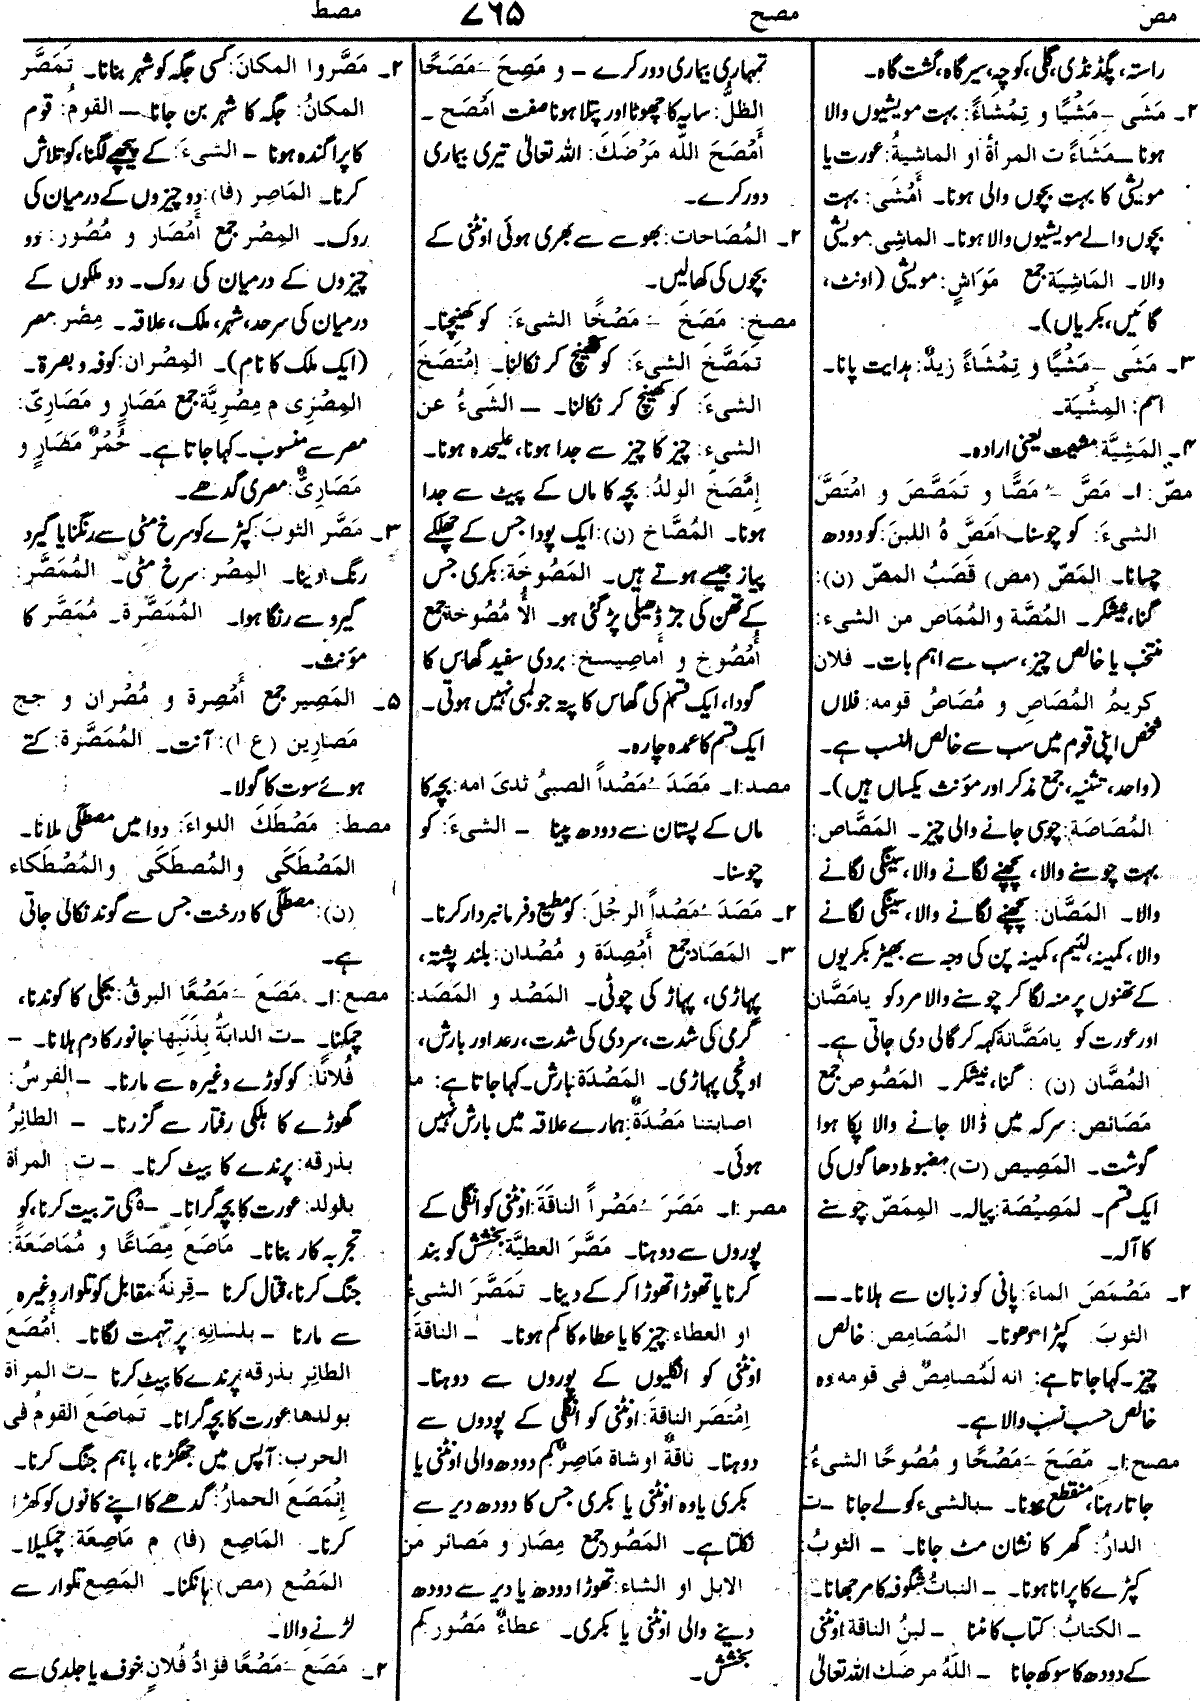 مص
مصح
۷۶۵
مصط
راستہ، پگڈنڈی، گلی، کوچہ، سیرگاہ، گشت گاہ۔
۲۔ مَشَی – مَشْیًا و تِمْشَاءً: بہت مویشیوں والا
ہونا – مَشَاءً ت المرأة او الماشیةُ: عورت یا
مویشی کا بہت بچوں والی ہونا۔ أَمْشَی: بہت
بچوں والے مویشیوں والا ہونا۔ الماشِی: مویشی
والا۔ المَاشِیَة جمع مَوَاشٍ: مویشی (اونٹ،
گائیں، بکریاں)۔
۳۔ مَشَی – مَشْیًا و تِمْشَاءً زیدٌ: ہدایت پانا۔
اسم: المِشْیَة۔
۴۔ المَشِیَّة: مشیت یعنی ارادہ۔
مصّ: ۱۔ مَصَّ – مَصًّا و تَمَصَّصَ و امْتَصَّ
الشیءَ: کو چوسنا۔ اَمَصَّ هُ اللبنَ: کو دودھ
چسانا۔ المَصّ (مص) قَصَبُ المصّ (ن):
گنا، نیشکر۔ المُصَّة والمُصَاص من الشیء:
منتخب یا خالص چیز، سب سے اہم بات۔ فلان
کریمُ المُصَاصِ و مُصَاصُ قومه: فلاں
شخص اپنی قوم میں سب سے خالص النسب ہے۔
(واحد، تثنیہ، جمع مذکر اور مؤنث یکساں ہیں)۔
المُصَاصَة: چوسی جانے والی چیز۔ المَصَّاص:
بہت چوسنے والا، پچھنے لگانے والا، سینگی لگانے
والا۔ المَصَّان: پچھنے لگانے والا، سینگی لگانے
والا، کمینہ، لئیم، کمینہ پن کی وجہ سے بھیڑ بکریوں
کے تھنوں پر منہ لگا کر چوسنے والا مرد کو یا مَصَّان
اور عورت کو یا مَصَّانة کہہ کر گالی دی جاتی ہے۔
المُصَّان (ن): گنا، نیشکر۔ المَصُوص جمع
مَصَائص: سرکہ میں ڈالا جانے والا پکا ہوا
گوشت۔ المَصِیص (ت): مضبوط دھاگوں کی
ایک قسم۔ لمَصِیْصَة: پیالہ۔ المِمَصّ چوسنے
کا آلہ۔
۲۔ مَصْمَصَ الماءَ: پانی کو زبان سے ہلانا۔ –
الثوبَ کپڑا دھونا۔ المُصَامِص: خالص
چیز۔ کہا جاتا ہے: انه لَمُصامِصٌ فی قومه وہ
خالص حسب نسب والا ہے۔
مصح: ۱۔ مَصَحَ – مَصْحًا و مُصُوحًا الشیءُ:
جاتا رہنا، منقطع ہونا۔ – بالشیء کو لے جانا – ت
الدارُ: گھر کا نشان مٹ جانا۔ – الثوبُ:
کپڑے کا پرانا ہونا۔ – النباتُ شگوفہ کا مرجھانا۔
– الکتابُ: کتاب کا مٹنا – لبنُ الناقة اونٹنی
کے دودھ کا سوکھ جانا – اللهُ مرضك اللہ تعالیٰ
تمہاری بیماری دور کرے – و مَصِحَ – مَصَحًا
الظلُّ: سایہ کا چھوٹا اور پتلا ہونا صفت اَمْصَح ۔
أَمْصَحَ اللّٰه مَرَضَكَ: اللہ تعالیٰ تیری بیماری
دور کرے۔
۲۔ المُصَاحات: بھوسے سے بھری ہوئی اونٹنی کے
بچوں کی کھالیں۔
مصخ: مَصَخَ – مَصْخًا الشیءَ: کو کھینچنا۔
تَمَصَّخَ الشیءَ: کو کھینچ کر نکالنا۔ اِمْتَصَخَ
الشیءَ: کو کھینچ کر نکالنا۔ – الشیءُ عن
الشیء: چیز کا چیز سے جدا ہونا، علیحدہ ہونا۔
اِمَّصَخَ الولدُ: بچہ کا ماں کے پیٹ سے جدا
ہونا۔ المُصَّاخ (ن): ایک پودا جس کے چھلکے
پیاز جیسے ہوتے ہیں۔ المَصُوخَة: بکری جس
کے تھن کی جڑ ڈھیلی پڑ گئی ہو۔ الأُ مْصُوخة جمع
أُمْصُوخ و أماصِیخ: بردی سفید گھاس کا
گودا، ایک قسم کی گھاس کا پتہ جو لمبی نہیں ہوتی۔
ایک قسم کا عمدہ چارہ۔
مصد: ۱۔ مَصَدَ – مَصْداً الصبیُّ ثدیَ امه: بچہ کا
ماں کے پستان سے دودھ پینا – الشیءَ: کو
چوسنا۔
۲۔ مَصَدَ – مَصْداً الرجُلَ: کو مطیع و فرمانبردار کرنا۔
۳۔ المَصَاد جمع أَمْصِدَة و مُصْدان: بلند پشتہ،
پہاڑی، پہاڑ کی چوٹی۔ المَصْد و المَصَد:
گرمی کی شدت، سردی کی شدت، رعد اور بارش،
اونچی پہاڑی۔ المَصْدَة بارش۔ کہا جاتا ہے: ما
اصابتنا مَصْدَةٌ: ہمارے علاقہ میں بارش نہیں
ہوئی۔
مصر: ۱۔ مَصَرَ – مَصْراً الناقَةَ: اونٹنی کو انگلی کے
پوروں سے دوہنا۔ مَصَّرَ العطیَّة: بخشش کو بند
کرنا یا تھوڑا تھوڑا کر کے دینا۔ تَمَصَّرَ الشیءُ
او العطاء: چیز کا یا عطاء کا کم ہونا۔ – الناقةَ:
اونٹنی کو انگلیوں کے پوروں سے دوہنا۔
اِمْتَصَر الناقةَ: اونٹنی کو انگلی کے پودوں سے
دوہنا۔ ناقةٌ او شاة مَاصِر کم دودھ والی اونٹنی یا
بکری یا وہ اونٹنی یا بکری جس کا دودھ دیر سے
نکلتا ہے۔ المَصُور جمع مِصار و مَصائر من
الابل او الشاء: تھوڑا دودھ یا دیر سے دودھ
دینے والی اونٹنی یا بکری۔ عطاءٌ مَصُور کم
بخشش۔
۲۔ مَصَّروا المکانَ: کسی جگہ کو شہر بنانا۔ تَمَصَّر
المکانُ: جگہ کا شہر بن جانا – القومُ: قوم
کا پراگندہ ہونا – الشیءَ: کے پیچھے لگنا، کو تلاش
کرنا۔ المَاصِر (فا): دو چیزوں کے درمیان کی
روک۔ المِصْر جمع أَمْصَار و مُصُور: دو
چیزوں کے درمیان کی روک۔ دو ملکوں کے
درمیان کی سرحد، شہر، ملک، علاقہ۔ مِصْر مصر
(ایک ملک کا نام)۔ المِصْران: کوفہ و بصرة۔
المِصْرِی م مِصْرِیَّة جمع مَصَارٍ و مَصَارِیّ:
مصر سے منسوب۔ کہا جاتا ہے۔ حُمُرٌ مَصَارٍ و
مَصَارِیٌّ: مصری گدھے۔
۳۔ مَصَّر الثوبَ: کپڑے کو سرخ مٹی سے رنگنا یا گیرو
رنگ دینا۔ المِصْر: سرخ مٹی۔ المُمَصَّر:
گیرو سے رنگا ہوا۔ المُمَصَّرة۔ مُمَصَّر کا
مؤنث۔
۵۔ المَصِیر جمع أَمْصِرة و مُصْران و جج
مَصارِین (ع ا): آنت۔ المُمَصَّرة: کتے
ہوئے سوت کا گولا۔
مصط: مَصْطَكَ الدواءَ: دوا میں مصطگی ملانا۔
المَصْطَكَی والمُصطَكَی والمُصْطَكاء
(ن): مصطگی کا درخت جس سے گوند نکالی جاتی
ہے۔
مصع: ۱۔ مَصَعَ – مَصْعًا البرقُ: بجلی کا کوندنا،
چمکنا۔ – ت الدابةُ بِذَنَبِها جانور کا دم ہلانا۔ –
فُلانًا: کو کوڑے وغیرہ سے مارنا۔ – الفرسُ:
گھوڑے کا ہلکی رفتار سے گزرنا۔ – الطائِرُ
بذرقه: پرندے کا بیٹ کرنا۔ – ت المرأة
بالولد: عورت کا بچہ گرانا۔ – هُ کی تربیت کرنا، کو
تجربہ کار بنانا۔ مَاصَعَ مِصَاعًا و مُمَاصَعَة:
جنگ کرنا، قتال کرنا – قِرنَهُ مقابل کو تلوار وغیرہ
سے مارنا – بلسانِه: پر تہمت لگانا۔ أَمْصَع
الطائر بذرقه پرندے کا بیٹ کرنا – ت المرأة
بولدها: عورت کا بچہ گرانا۔ تماصَعَ القومُ فی
الحرب: آپس میں جھگڑنا، باہم جنگ کرنا۔
اِنْمَصَعَ الحمارُ: گدھے کا اپنے کانوں کو کھڑا
کرنا۔ المَاصِع (فا) م مَاصِعَة: چمکیلا۔
المَصْع (مص): ہانکنا۔ المَصِع تلوار سے
لڑنے والا۔
۲۔ مَصَعَ – مَصْعًا فؤادُ فُلانٍ: خوف یا جلدی سے